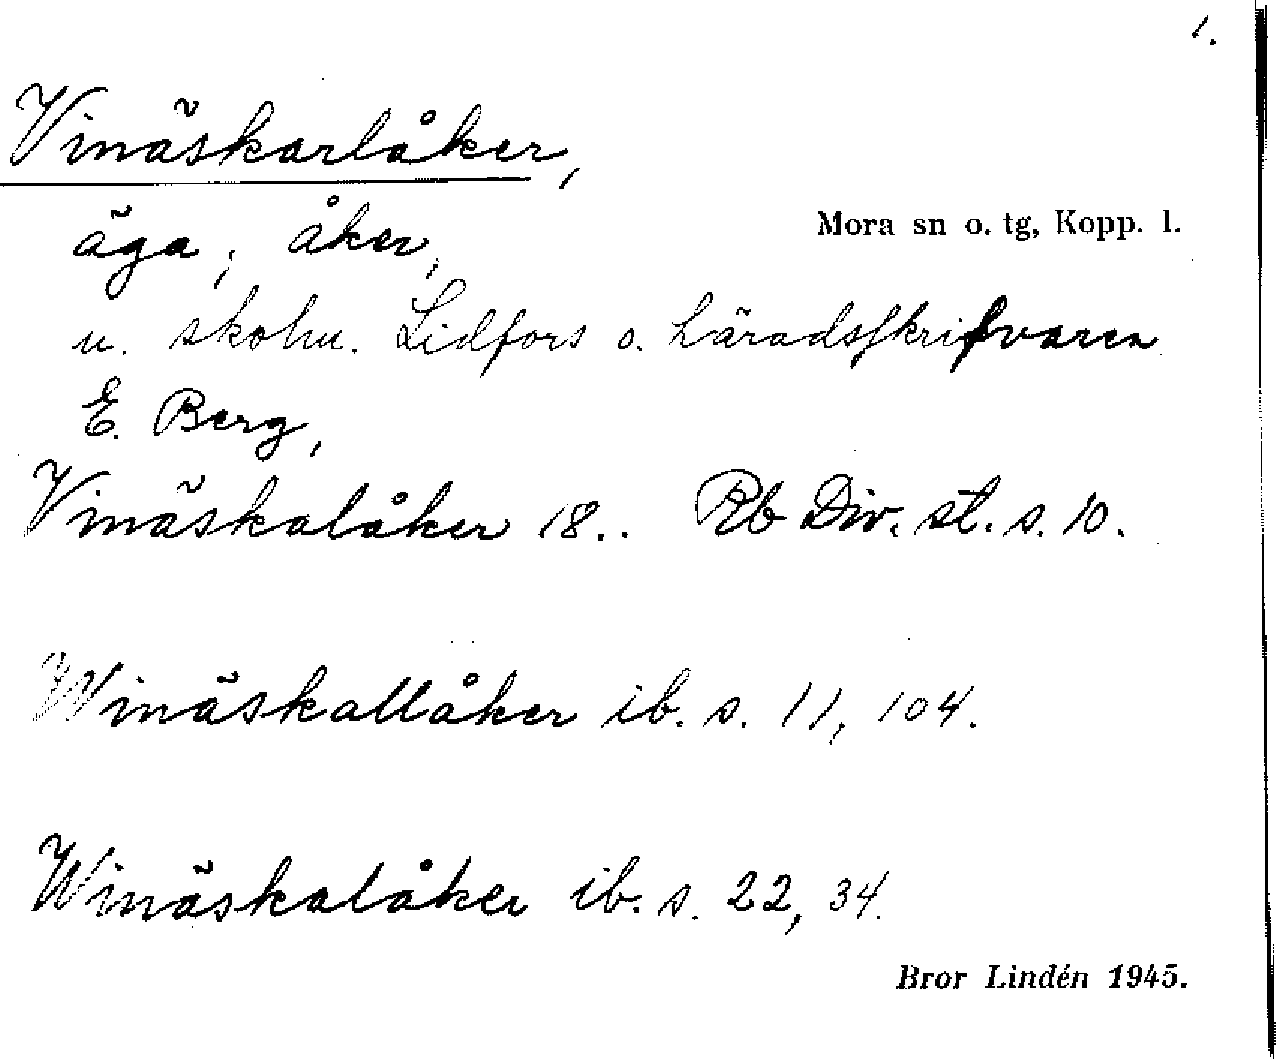 1.
Vinäskarlåker,
äga, åker,
Mora sn o. tg, Kopp. l.
u. skohu. Lidfors o. häradsskrifvaren
E. Berg,
Vinäskalåker 18.. Rb Div. st. s. 10.
Winäskallåker ib. s. 11, 104.
Winäskalåker ib. s. 22, 34.
Bror Lindén 1945.